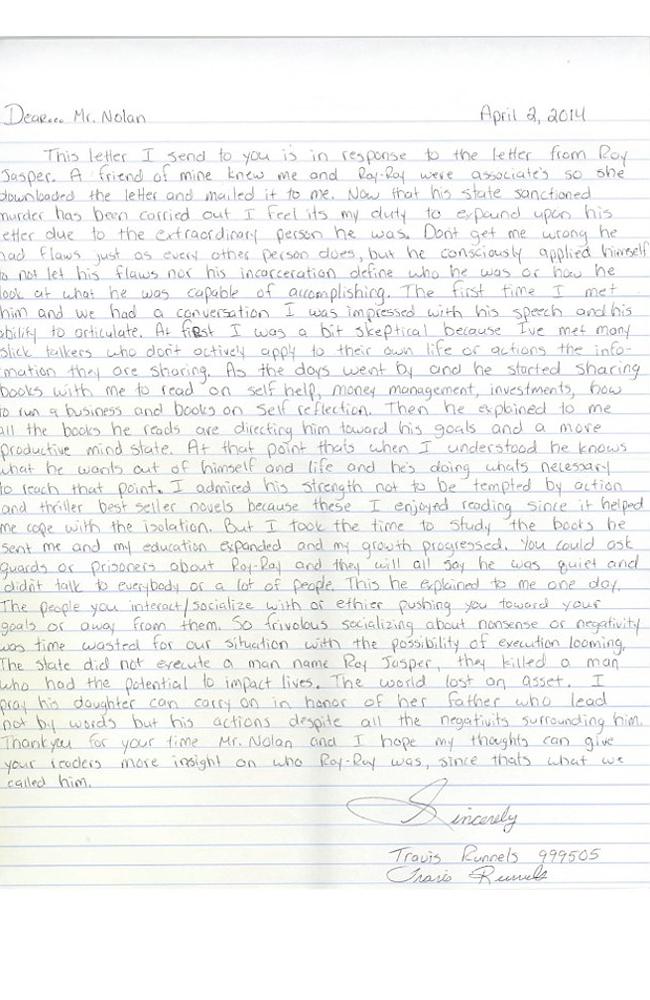 Dear... Mr. Nolan April 2, 2014
This letter I send to you is in response to the letter from Ray
Jasper. A friend of mine knew me and Ray-Ray were associate's so she
downloaded the letter and mailed it to me. Now that his state sanctioned
murder has been carried out I feel its my duty to expound upon his
etter due to the extraordinary person he was. Dont get me wrong he
had flaws just as every other person does, but he consciously applied himself
to not let his flaws nor his incarceration define who he was or how he
look at what he was capable of accomplishing. The first time I met
him and we had a conversation I was impressed with his speech and his
ability to articulate. At first I was a bit skeptical because I've met many
slick talkers who don't actively apply to their own life or actions the info-
rmation they are sharing. As the days went by and he started sharing
books with me to read on self help, money management, investments, how
to run a business and books on self reflection. Then he explained to me
all the books he reads are directing him toward his goals and a more
productive mind state. At that point thats when I understood he knows
what he wants out of himself and life and he's doing whats necessary
to reach that point. I admired his strength not to be tempted by action
and thriller best seller novels because these I enjoyed reading since it helped
me cope with the isolation. But I took the time to study the books he
sent me and my education expanded and my growth progressed. You could ask
guards or prisoners about Ray-Ray and they will all say he was quiet and
didn't talk to everybody or a lot of people. This he explained to me one day.
The people you interact/socialize with or ethier pushing you toward your
goals or away from them. So frivolous socializing about nonsense or negativity
was time wasted for our situation with the possibility of execution looming.
The state did not execute a man name Ray Jasper, they killed a man
who had the potential to impact lives. The world lost an asset. I
pray his daughter can carry on in honor of her father who lead
not by words but his actions despite all the negativity surrounding him.
Thankyou for your time Mr. Nolan and I hope my thoughts can give
your readers more insight on who Ray-Ray was, since thats what we
called him.
Sincerely
Travis Runnels 999505
Travis Runnels